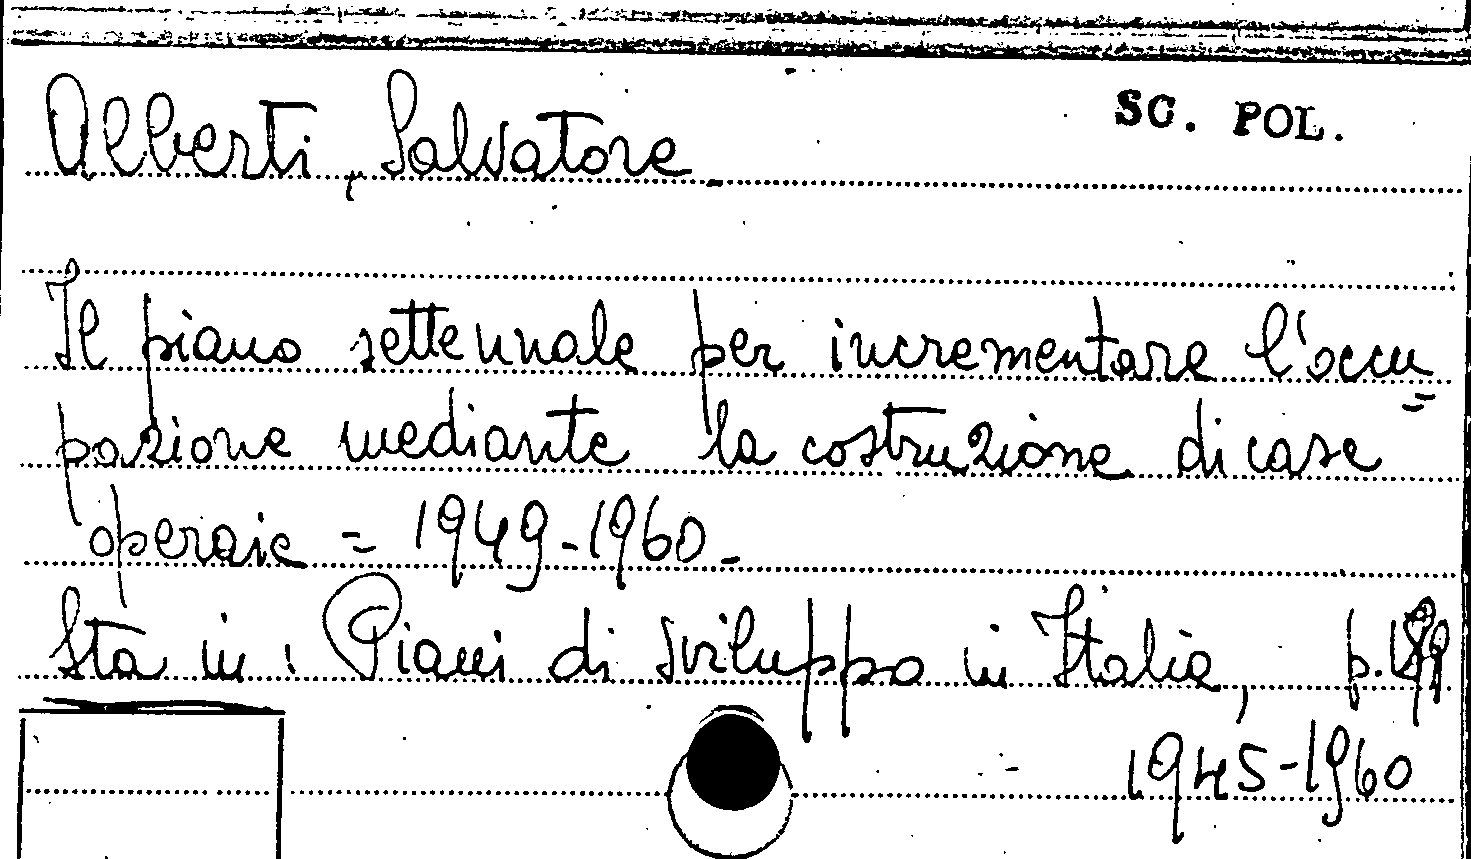 SC. POL.
Alberti, Salvatore.
Il piano settennale per incrementare l'occu=
pazione mediante la costruzione di case
operaie = 1949-1960.
Sta in: Piani di sviluppo in Italia, p.
1945-1960